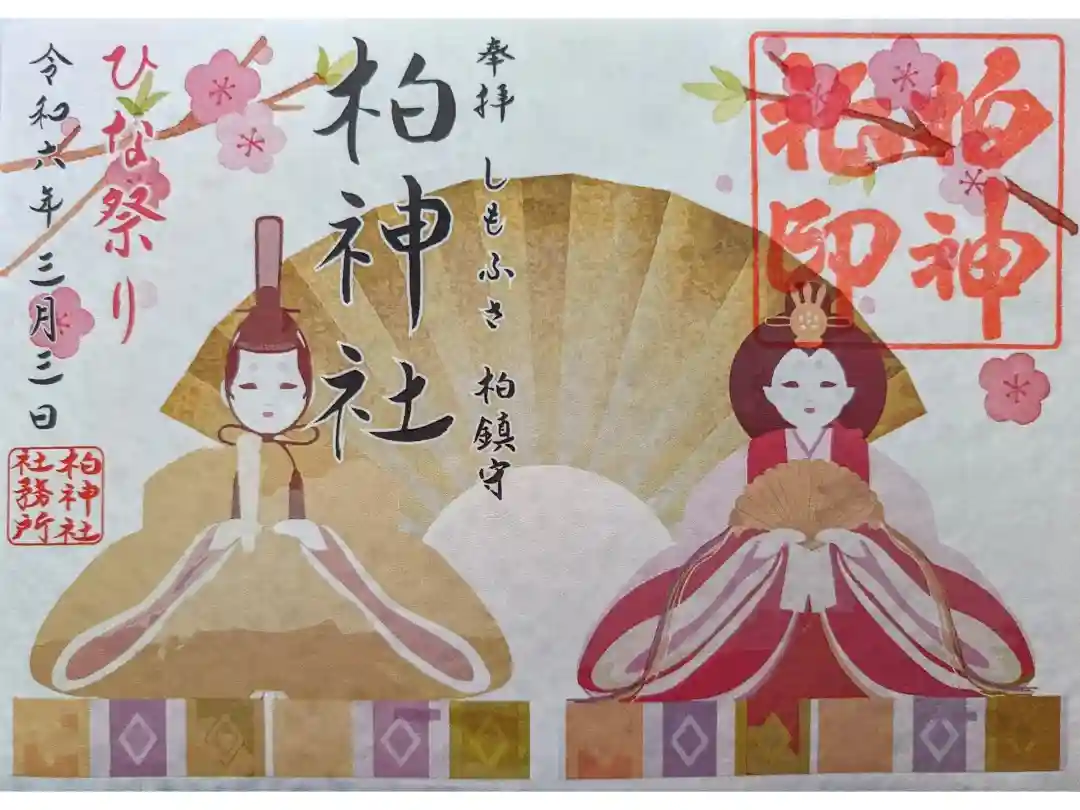 柏神
礼印
奉拝 しもふさ 柏鎮守
柏神社
ひな祭り
令和六年三月三日
柏神社
社務所